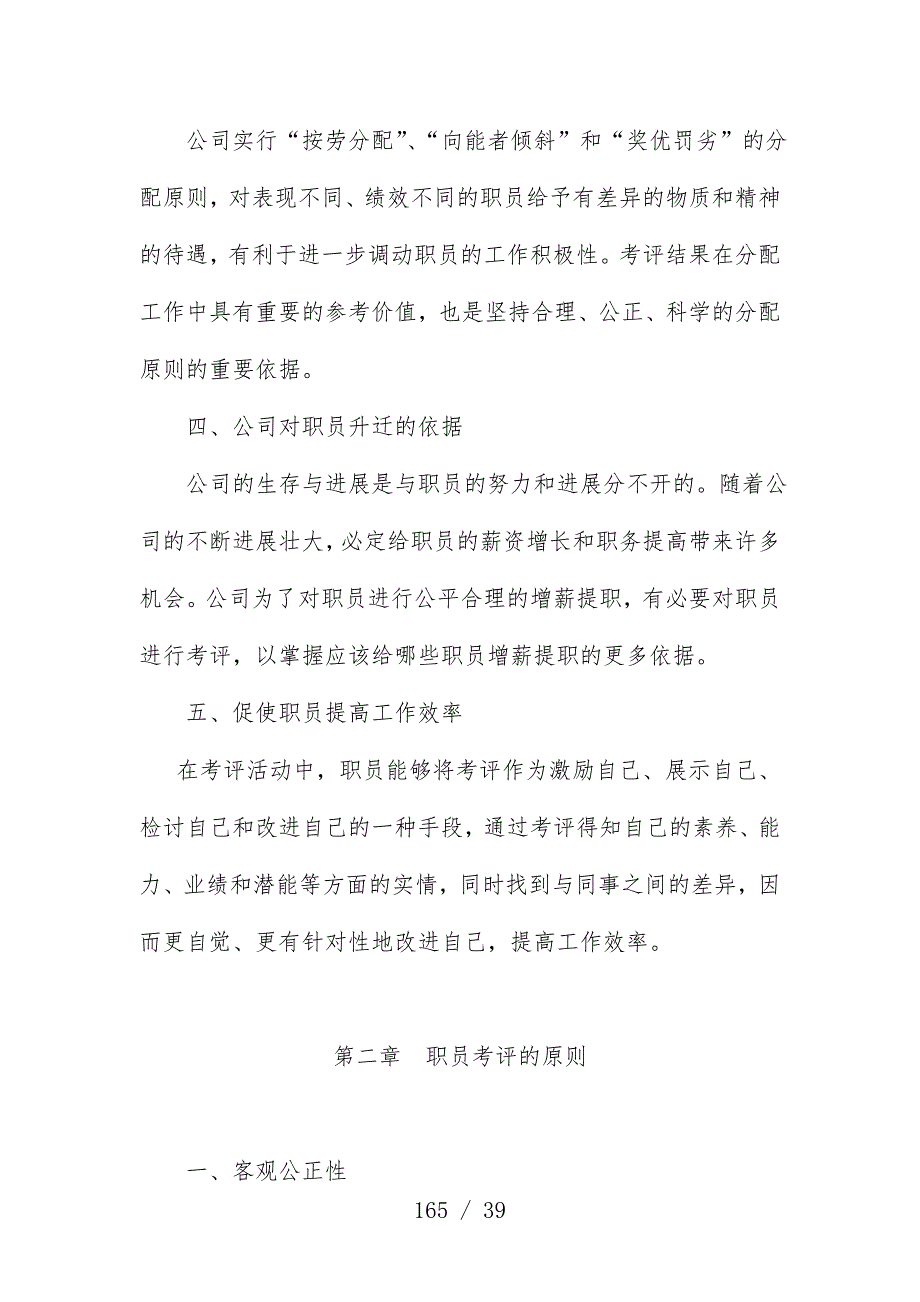 公司实行“按劳分配”、“向能者倾斜”和“奖优罚劣”的分
配原则，对表现不同、绩效不同的职员给予有差异的物质和精神
的待遇，有利于进一步调动职员的工作积极性。考评结果在分配
工作中具有重要的参考价值，也是坚持合理、公正、科学的分配
原则的重要依据。
四、公司对职员升迁的依据
公司的生存与进展是与职员的努力和进展分不开的。随着公
司的不断进展壮大，必定给职员的薪资增长和职务提高带来许多
机会。公司为了对职员进行公平合理的增薪提职，有必要对职员
进行考评，以掌握应该给哪些职员增薪提职的更多依据。
五、促使职员提高工作效率
在考评活动中，职员能够将考评作为激励自己、展示自己、
检讨自己和改进自己的一种手段，通过考评得知自己的素养、能
力、业绩和潜能等方面的实情，同时找到与同事之间的差异，因
而更自觉、更有针对性地改进自己，提高工作效率。
第二章　职员考评的原则
一、客观公正性
165 / 39